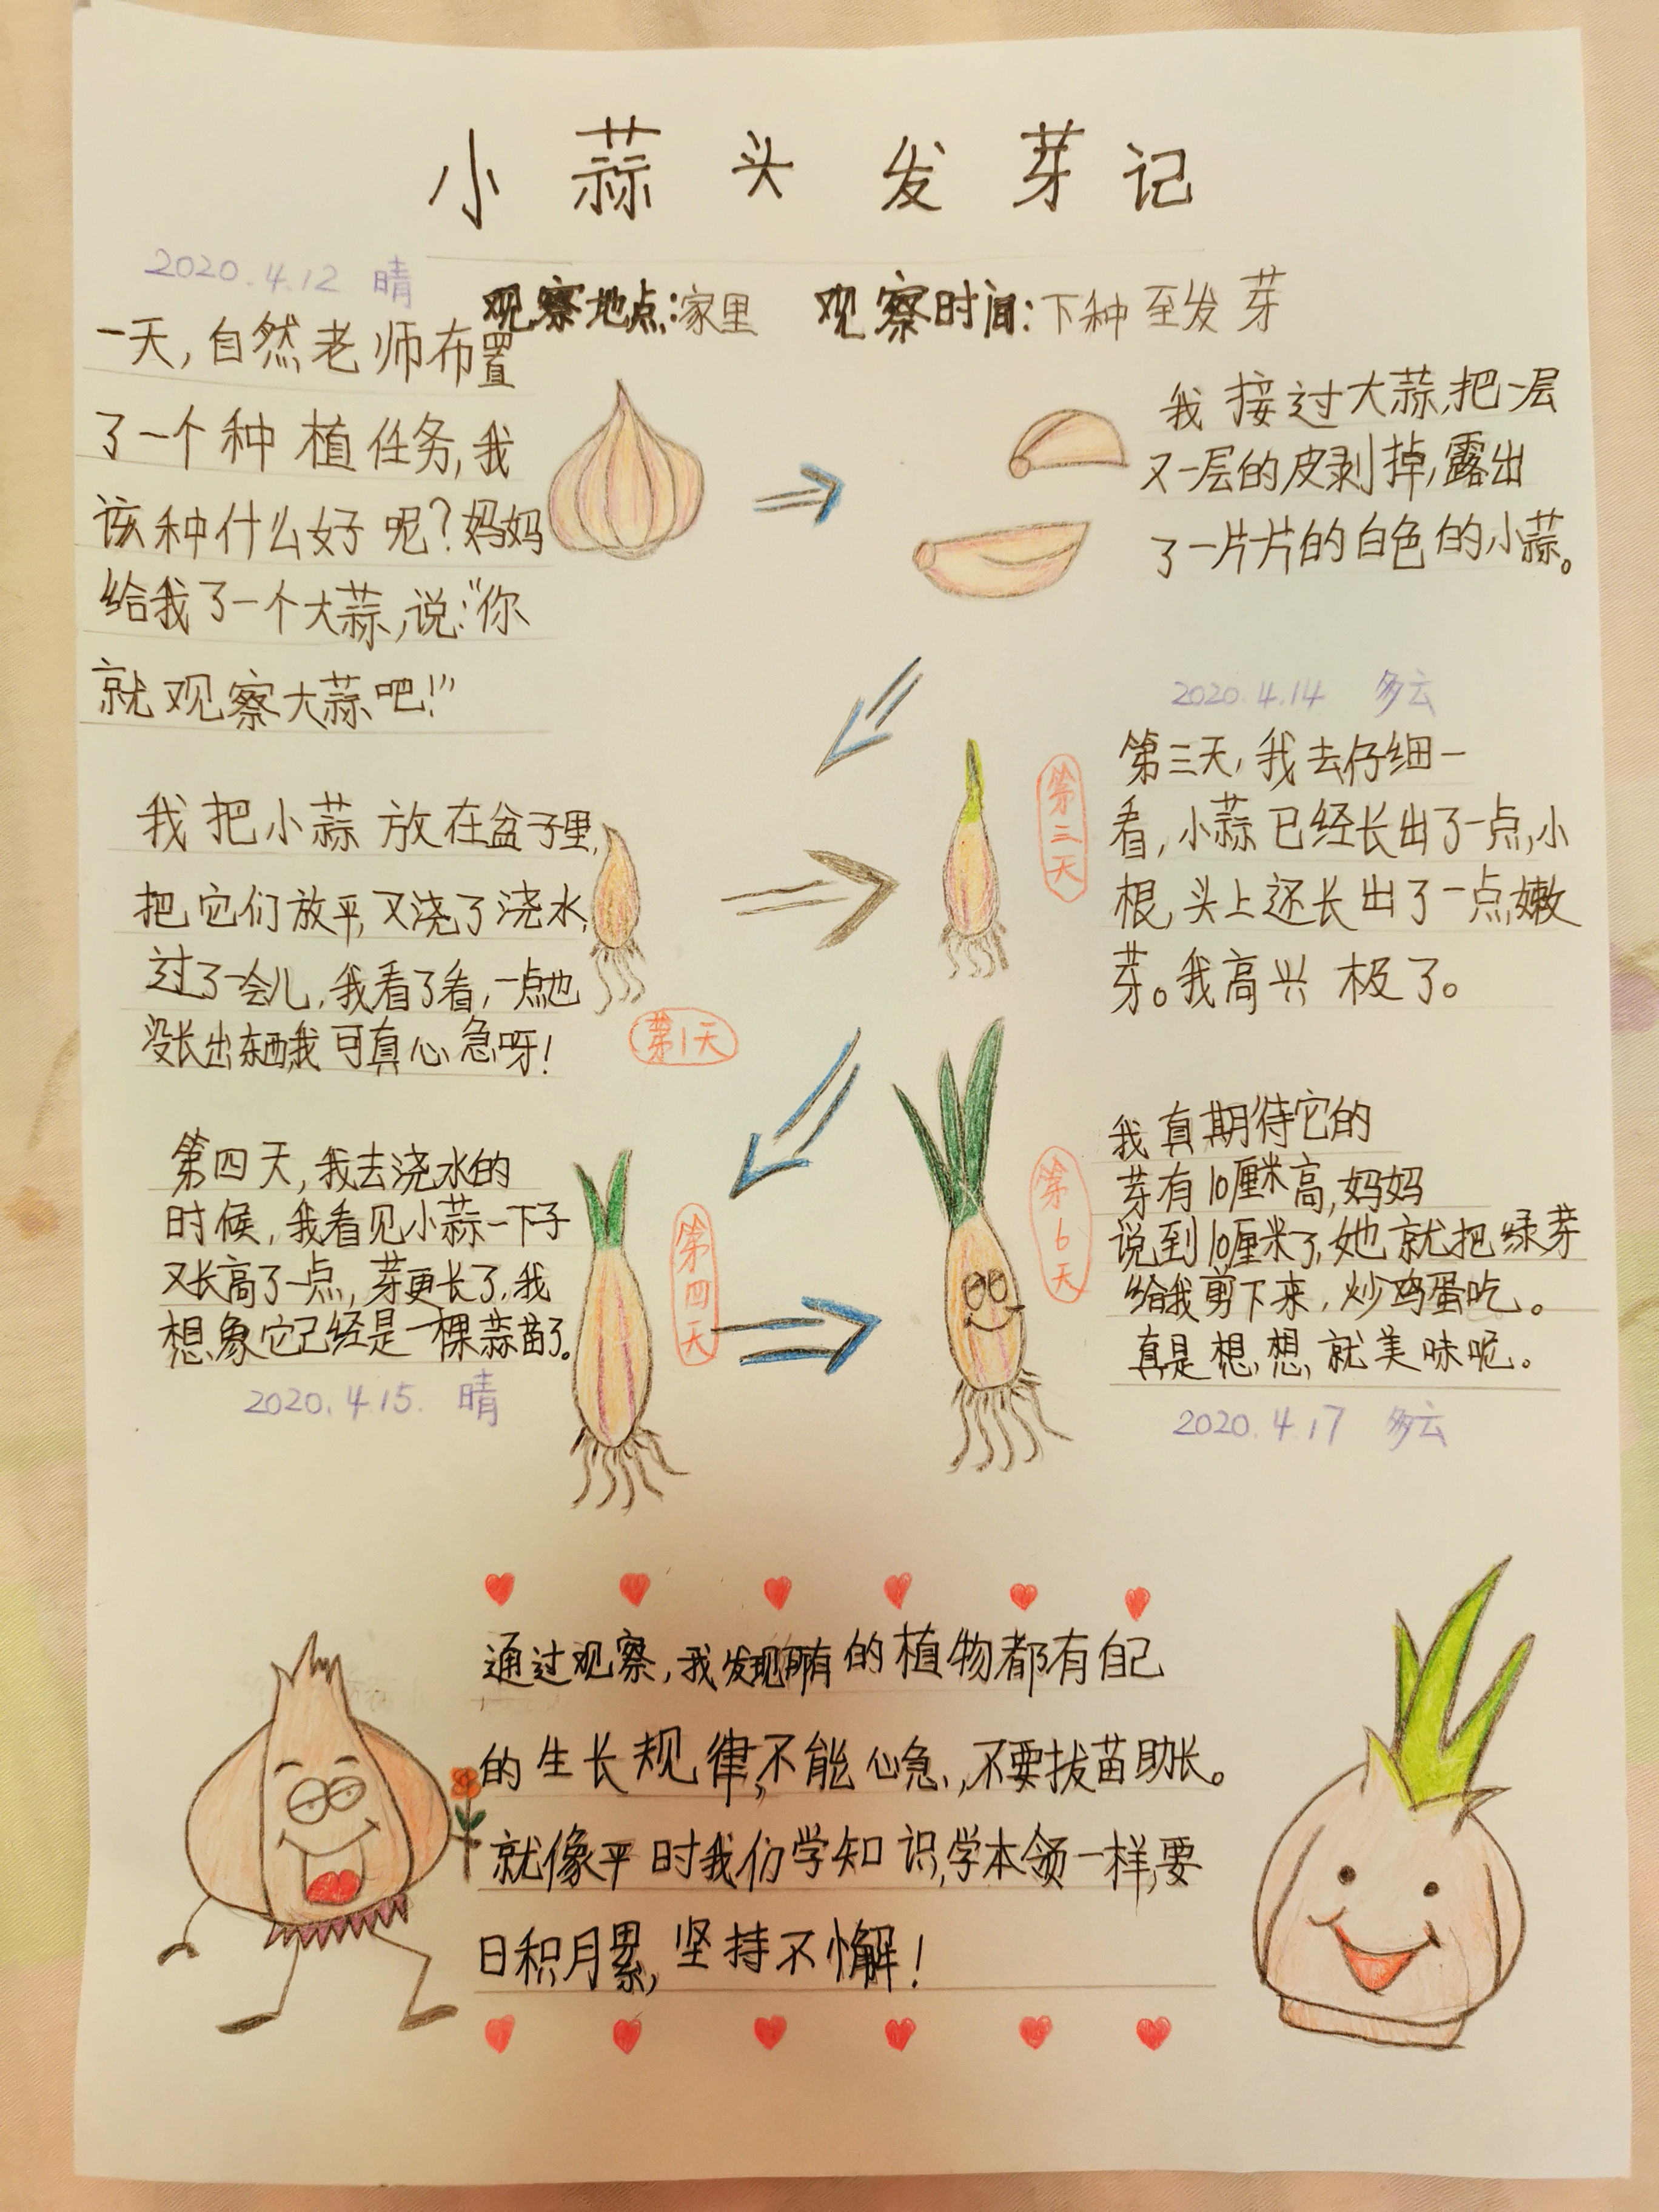 小蒜头发芽记
2020.4.12 晴
观察地点:家里 观察时间:下种至发芽
一天,自然老师布置
了一个种植任务,我
该种什么好呢?妈妈
给我了一个大蒜,说:“你
就观察大蒜吧!”
我接过大蒜,把一层
又一层的皮剥掉,露出
了一片片的白色的小蒜。
我把小蒜放在盆子里,
把它们放平,又浇了浇水,
过了一会儿,我看了看,一点也
没长出东西我可真心急呀!
第1天
2020.4.14 多云
第三天,我去仔细一
看,小蒜已经长出了一点,小
根,头上还长出了一点,嫩
芽。我高兴极了。
第三天
第四天,我去浇水的
时候,我看见小蒜一下子
又长高了一点,芽更长了,我
想象它已经是一棵蒜苗了。
2020.4.15. 晴
第四天
我真期待它的
芽有10厘米高,妈妈
说到10厘米了,她就把绿芽
给我剪下来,炒鸡蛋吃。
真是想,想,就美味呢。
2020.4.17 多云
第6天
通过观察,我发现所有的植物都有自己
的生长规律,不能心急,,不要拔苗助长。
就像平时我们学知识,学本领一样,要
日积月累,坚持不懈!